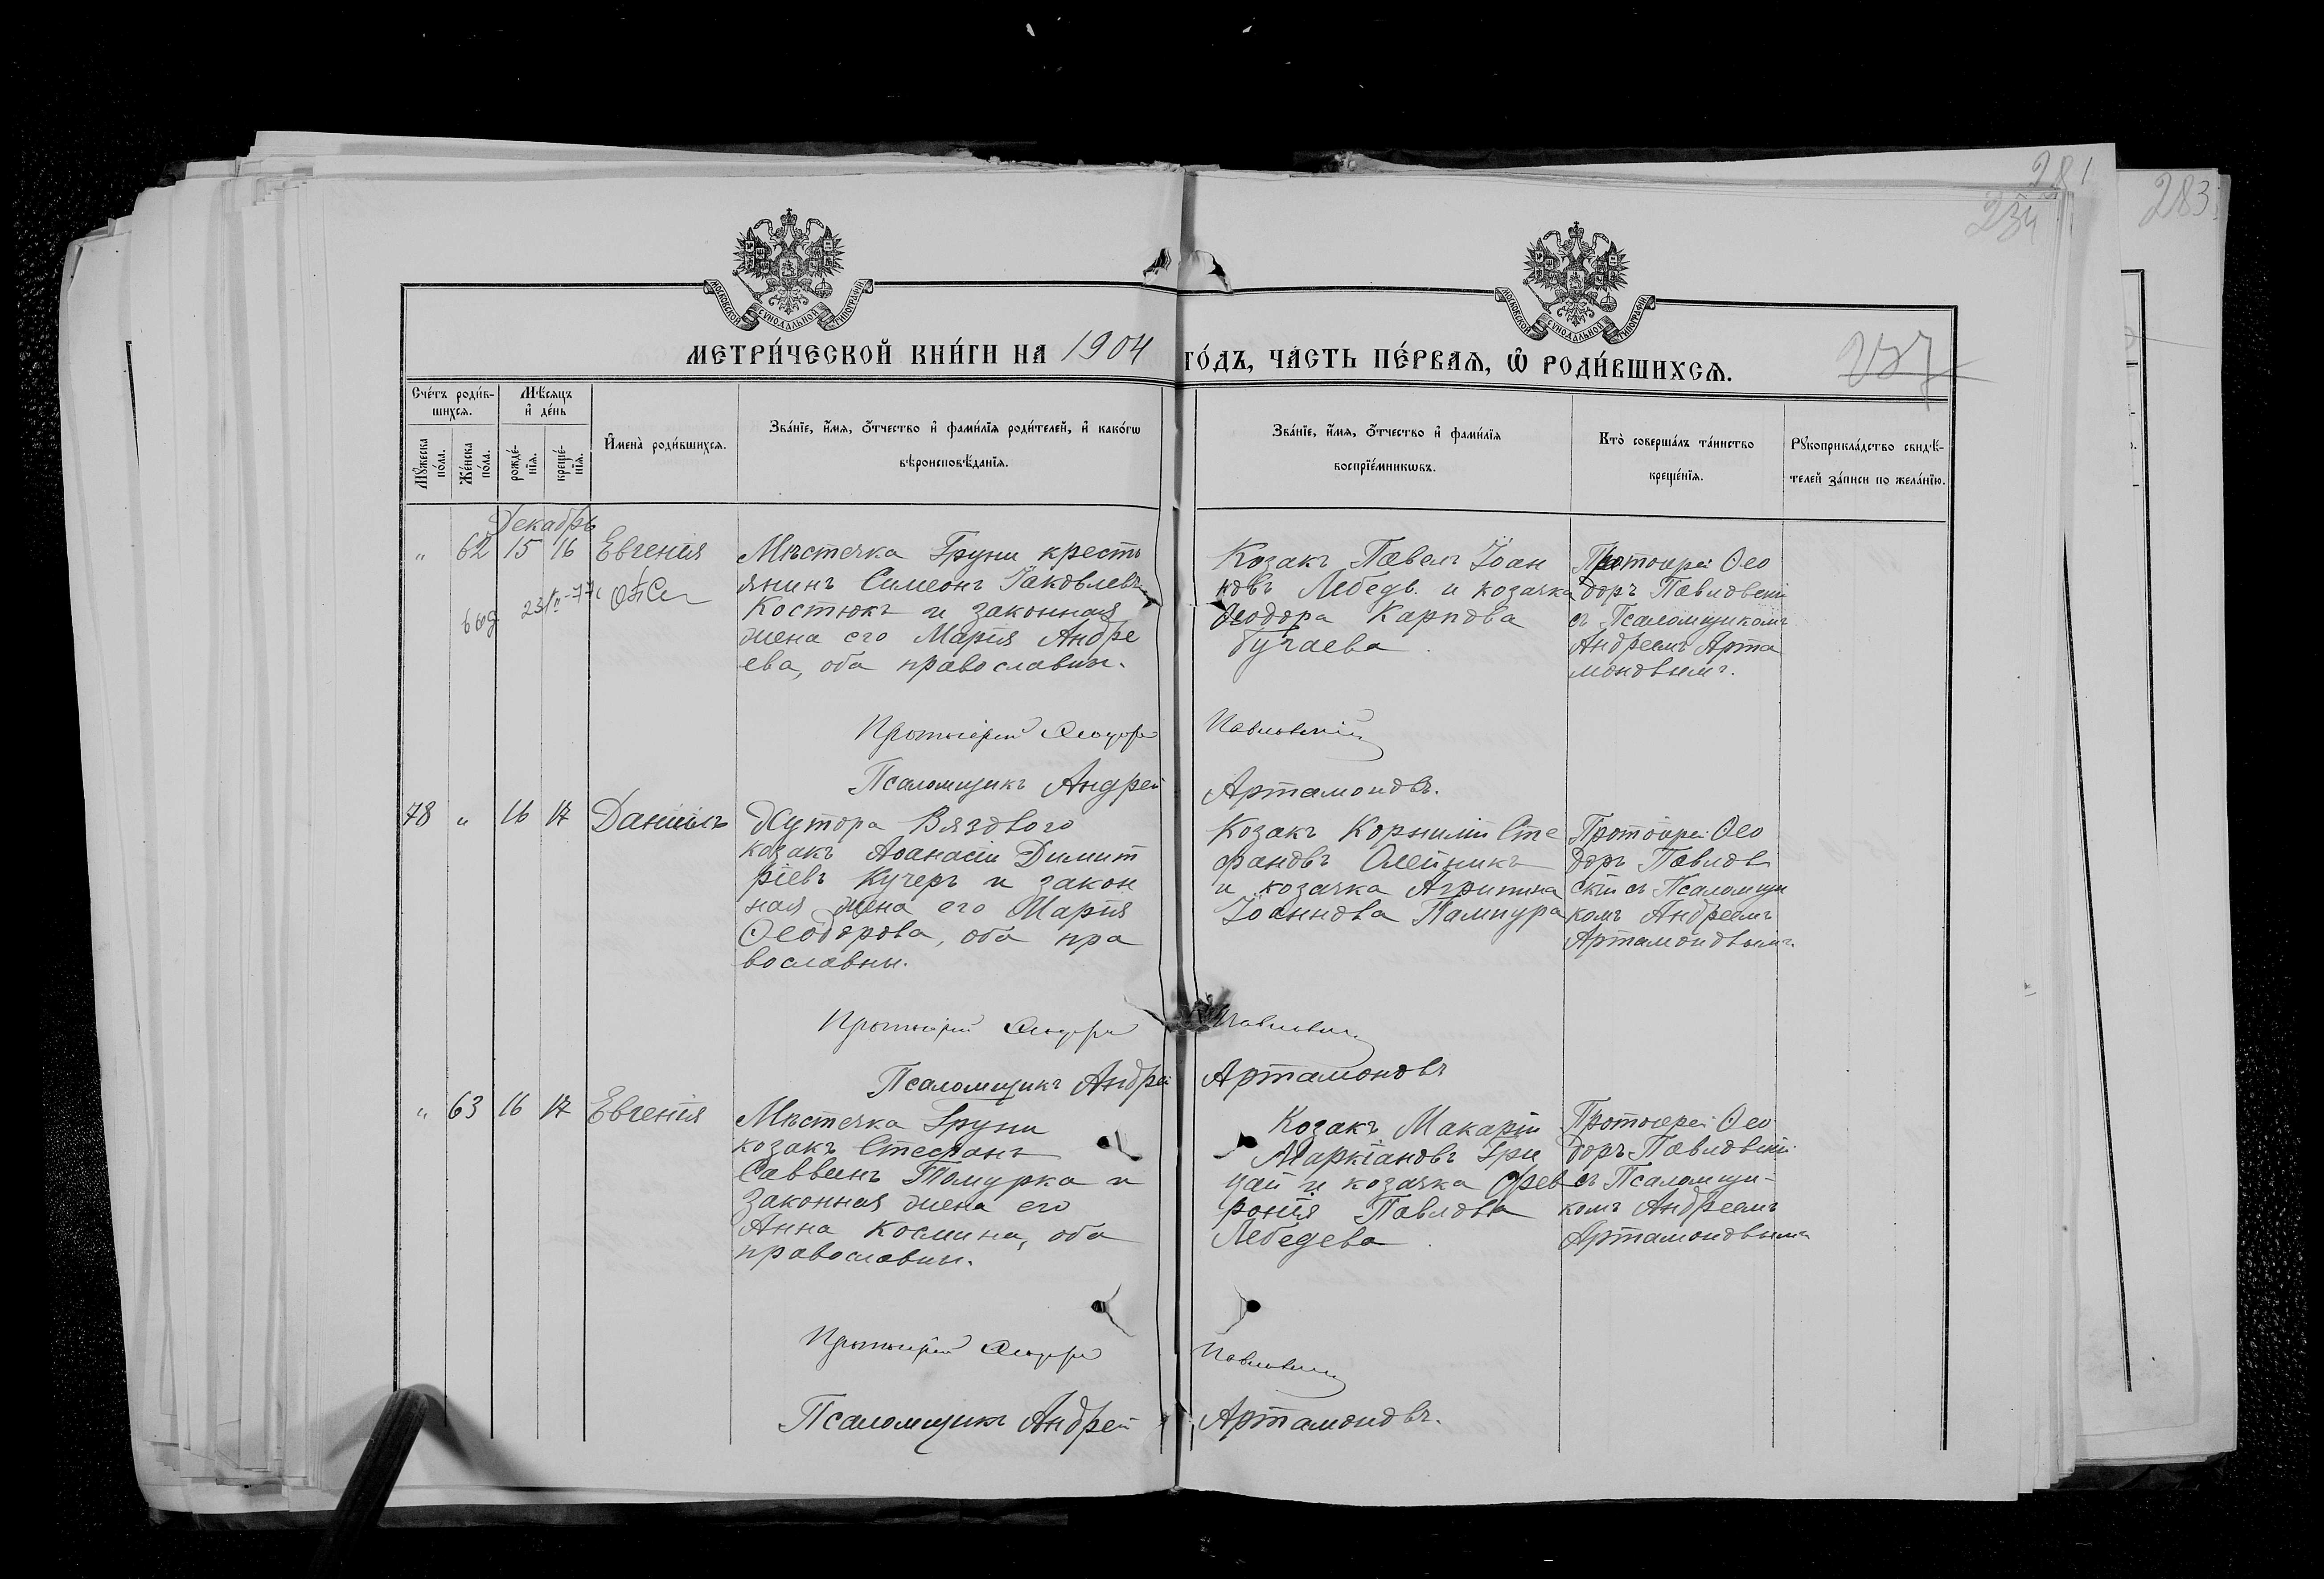 281
234
283
МОСКОВСКОЙ СУНОДАЛЬНОЙ ТИПОГРАФІИ
МОСКОВСКОЙ СУНОДАЛЬНОЙ ТИПОГРАФІИ
МЕТРИ́ЧЕСКОЙ КНИ́ГИ НА 1904 ГО́ДЪ, ЧА́СТЬ ПЕ́РВАѦ, Ѡ҆ РОДИ́ВШИХСѦ.
237
Сче́тъ роди́в-
шихсѧ.
Мꙋ́жеска
по́ла.
Же́нска
по́ла.
Мѣ́сѧцъ
и҆ де́нь
рожде́-
нїѧ.
креще́-
нїѧ.
И҆мена̀ роди́вшихсѧ.
Зва́нїе, и҆́мѧ, ѻ҆́тчество и҆ фами́лїѧ роди́телей, и҆ како́гѡ
вѣроисповѣ́данїѧ.
Зва́нїе, и҆́мѧ, ѻ҆́тчество и҆ фами́лїѧ
воспрїе́мникѡвъ.
Кто̀ соверша́лъ та́инство
креще́нїѧ.
Рꙋкоприкла́дство свидѣ́-
телей за́писи по жела́нїю.
Декабрь
" 62 15 16 Евгенія
Мѣстечка Груни кресть
янинъ Симеонъ Іаковлевъ
Костюкъ и законная
жена его Марія Андре
ева, оба православн.
Козакъ Павелъ Іоан
новъ Лебедь и козачка
Ѳеодора Карпова
Бугаева
Протоіерей Ѳео
доръ Павловскій
съ Псаломщикомъ
Андреемъ Арта
моновымъ.
Протоіерей Ѳеодоръ Павловскій
Псаломщикъ Андрей Артамоновъ.
78 " 16 17 Даніилъ
Хутора Вязоваго
козакъ Аѳанасій Димит
ріевъ Кучеръ и закон
ная жена его Марія
Ѳеодорова, оба пра
вославны.
Козакъ Корнилій Сте
фановъ Олейникъ
и козачка Агрипина
Іоаннова Пампура
Протоіерей Ѳео
доръ Павлов
скій съ Псаломщи
комъ Андреемъ
Артамоновымъ.
Протоіерей Ѳеодоръ Павловскій
Псаломщикъ Андрей Артамоновъ
" 63 16 17 Евгенія
Мѣстечка Груни
козакъ Стефанъ
Саввинъ Томурка и
законная жена его
Анна Космина, оба
православны.
Козакъ Макарій
Маркіановъ Гри
цай и козачка Фев
ронія Павлова
Лебедева
Протоіерей Ѳео
доръ Павловскій
съ Псаломщи-
комъ Андреемъ
Артамоновымъ
Протоіерей Ѳеодоръ Павловскій
Псаломщикъ Андрей Артамоновъ.